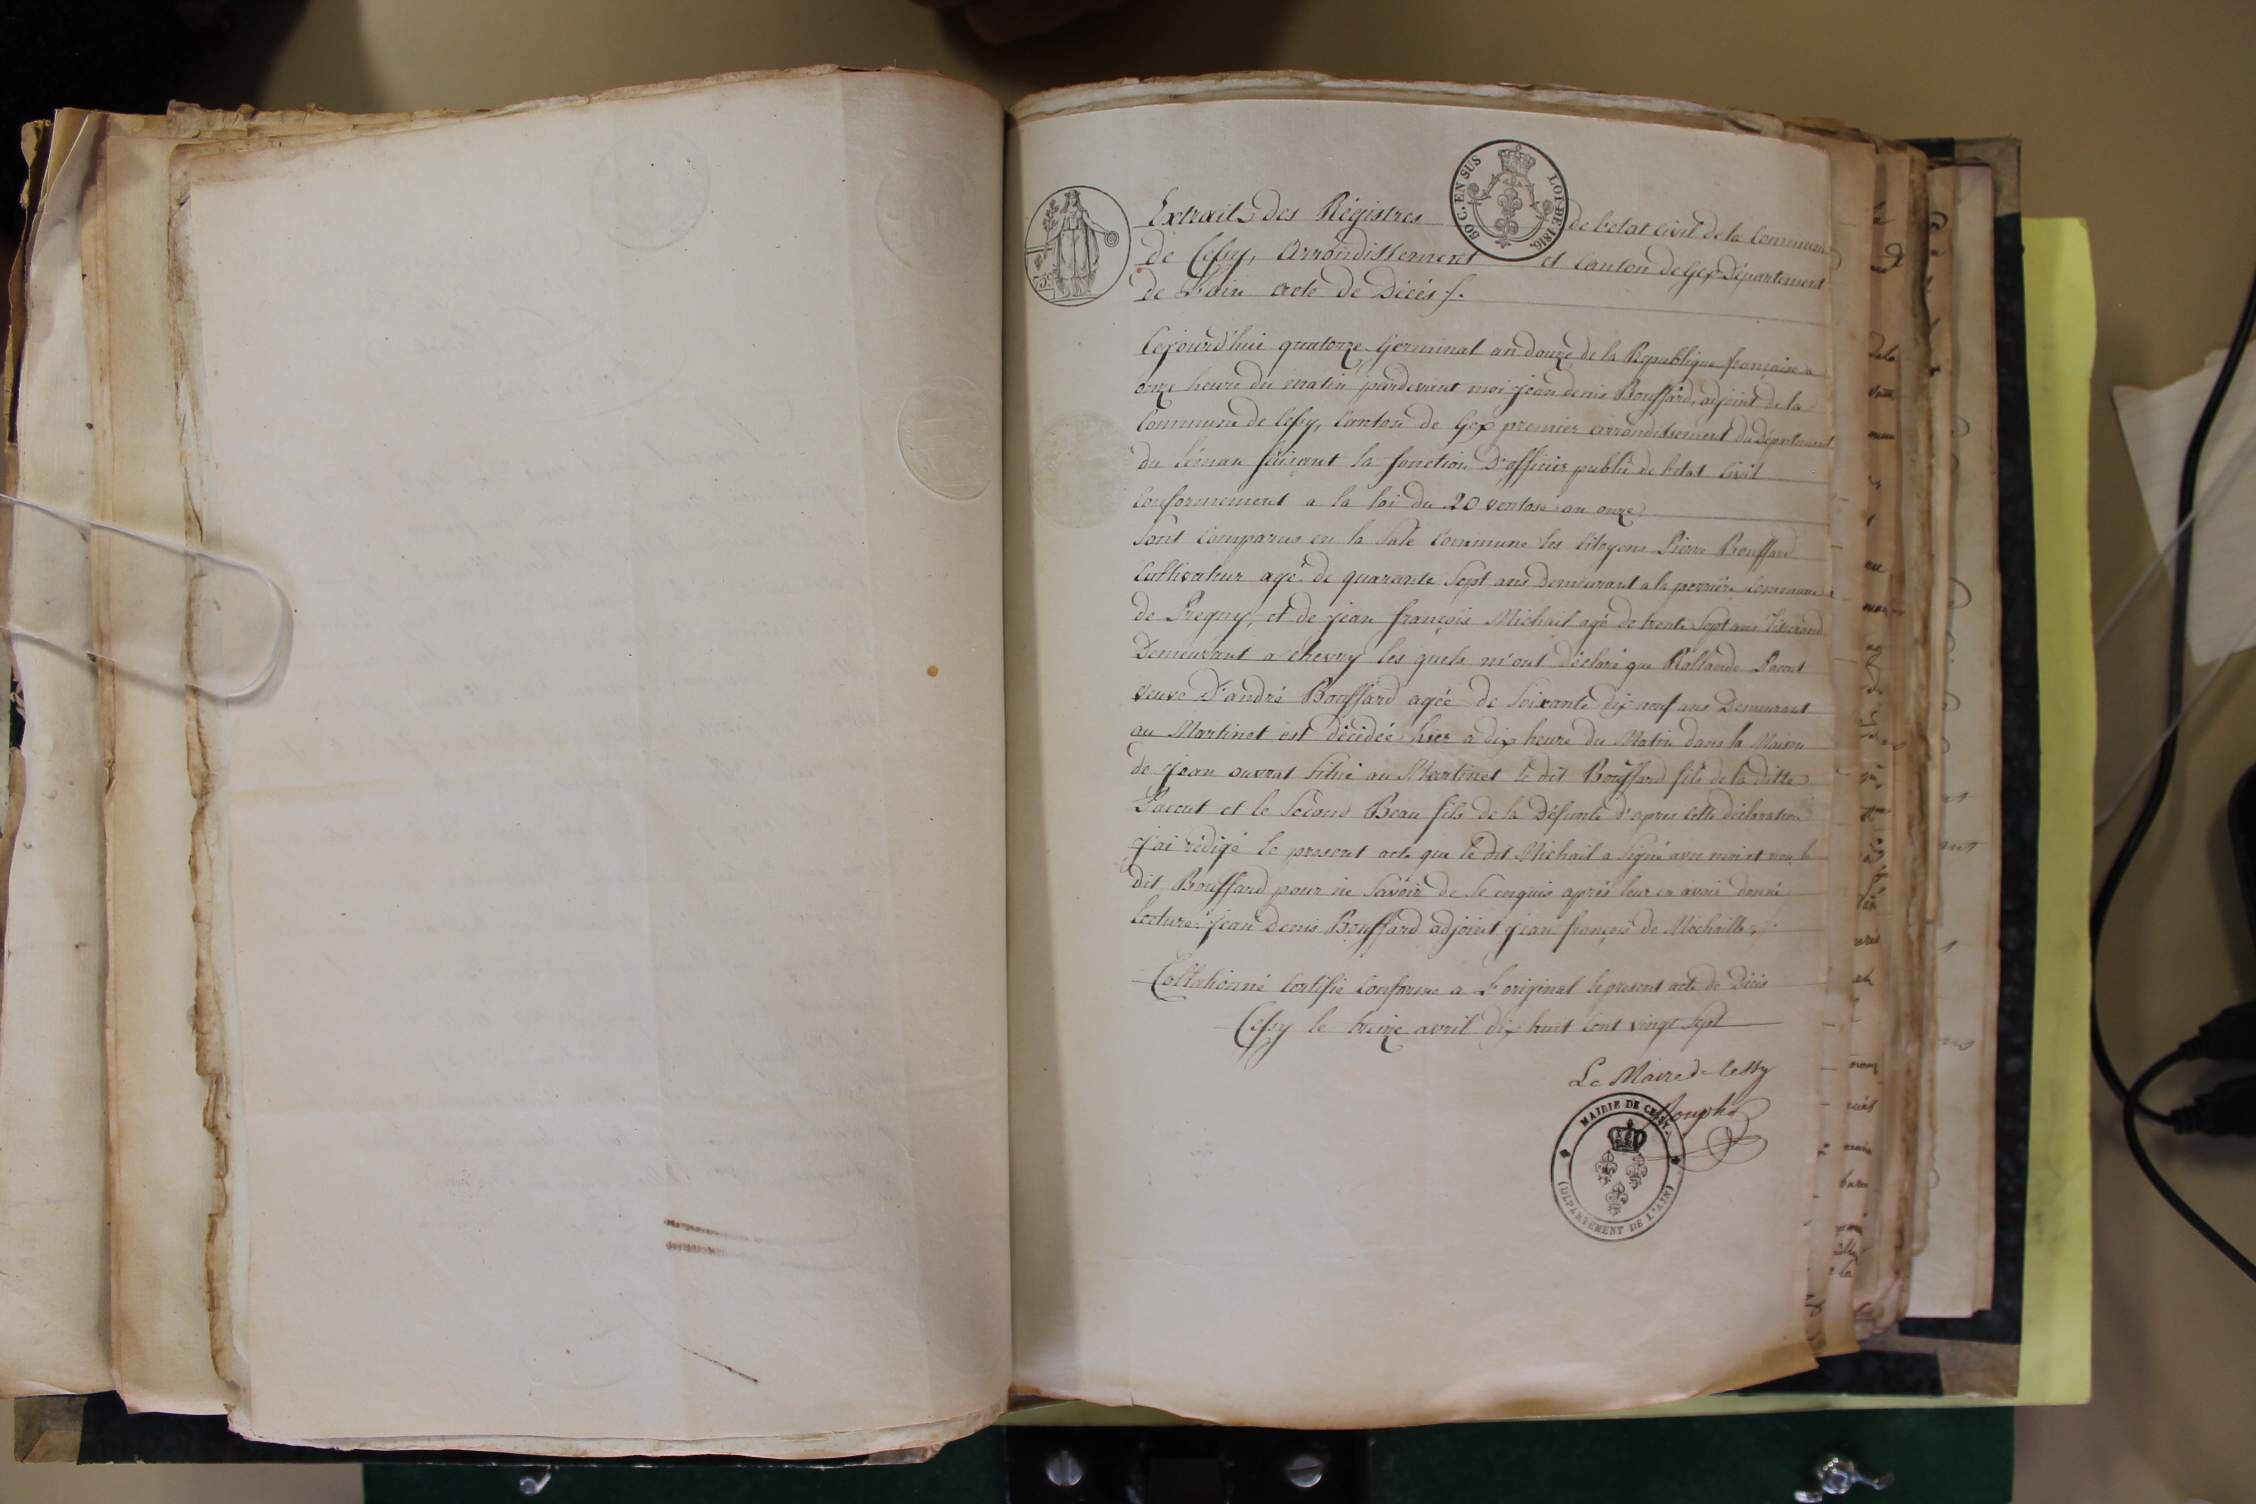 75c
50 C. EN SUS LOI DE 1816.
Extrait des Régistres de l'etat Civil de la Commune
de Cessy, Arrondissement et Canton de Gex Département
de L'ain acte de Décés /.
Cejourd'hui quatorze Germinal an douze de la Republique française a
onze heure du matin, pardevant moi jean denis Bouffard, adjoint de la
Commune de Cessy, Canton de Gex premier arrondissement du Département
du léman faisant la fonction D'officier public de l'etat Civil
Conformement a la loi du 20 ventose an onze
Sont Comparus en la Sale Commune les Citoyens Pierre Bouffard
Cultivateur agé de quarante Sept ans Demeurant a la perrière Commune
de Pregny, et de jean françois Michail agé de trente Sept ans Tisserand
Demeurant a chevry les quels m'ont déclaré que Rollande Pacout
Veuve D'andré Bouffard agée de Soixante dix neuf ans Demeurant
au Martinet est décédée hier a dix heure du Matin dans la Maison
de jean ouvrat Situé au Martinet le dit Bouffard fils de la ditte
Pacout et le Second Beau fils de la Défunte d'apres Cette déclaration
j'ai rédigé le present acte que le dit Michail a Signé avec moi et non le
dit Bouffard pour ne Savoir de Ce enquis après leur en avoir donné
lecture. jean Denis Bouffard adjoint jean françois de Mochaille,
Collationné Certifié Conforme a L'original le present acte de Décès
Cessy le treize avril dix huit Cent vingt Sept
Le Maire de Cessy
MAIRIE DE CESSY
(DEPARTEMENT DE L'AIN)